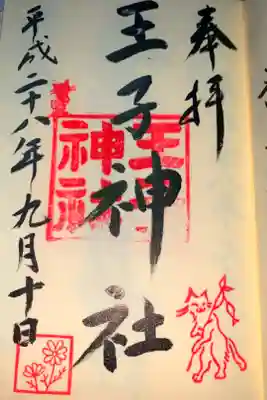 奉拝
王子神社
王子神社
平成二十八年九月十日